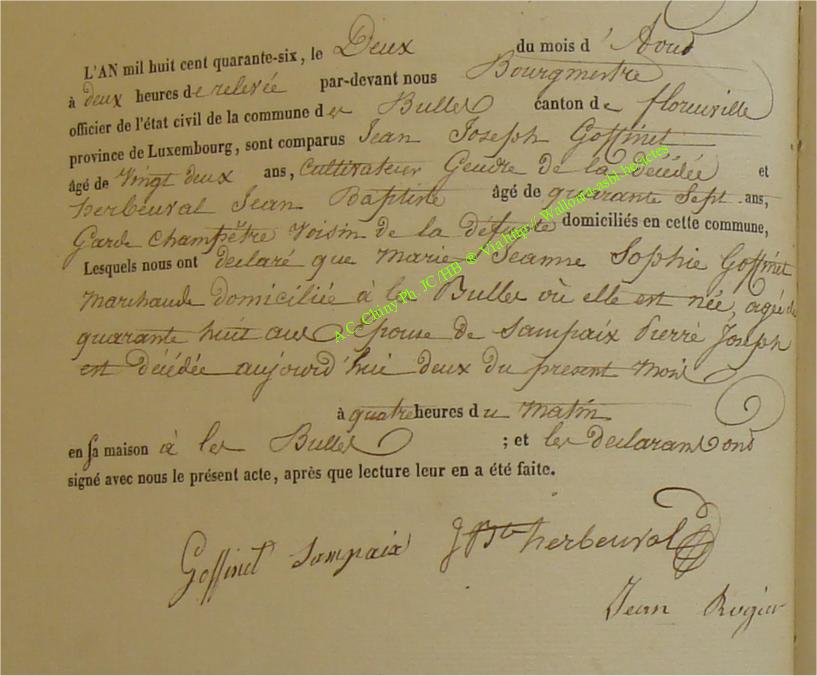 L'AN mil huit cent quarante-six, le Deux du mois d'Aout
à deux heures de relevée par-devant nous Bourgmestre
officier de l'état civil de la commune des Bulles canton de florenville
province de Luxembourg, sont comparus Jean Joseph Goffinet
âgé de Vingt deux ans, Cultivateur Gendre de la décédée et
herbeuval Jean Baptiste âgé de quarante Sept ans,
Garde champêtre Voisin de la défunte domiciliés en cette commune,
Lesquels nous ont declaré que Marie Jeanne Sophie Goffinet
Marchande domiciliée à les Bulles où elle est née, agée de
quarante huit ans Epouse de Sampaix Pierre Joseph
est décédée aujourd'hui deux du present Mois
à quatre heures du Matin
en sa maison à les Bulles ; et les declarans ont
signé avec nous le présent acte, après que lecture leur en a été faite.
Goffinet Sampaix JBte herbeuval
Jean Rogier
AC Chiny Ph JC/HB @ Via http:// Wallonia-asbl.be/actes